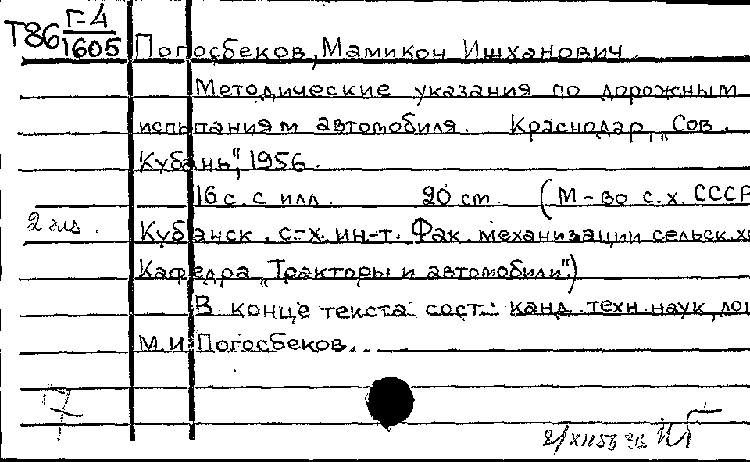 Т86 Г-4
1605
Погосбеков, Мамикон Ишханович.
Методические указания по дорожным
испытаниям автомобиля. Краснодар, „Сов.
Кубань", 1956.
16 с. с илл. 20 см (М-во с.х. СССР
2 экз. Кубанск. с-х. ин-т. Фак. механизации сельск. хо
Кафедра „Тракторы и автомобили".)
В конце текста сост.: канд. техн. наук, доц
М.И. Погосбеков.
7